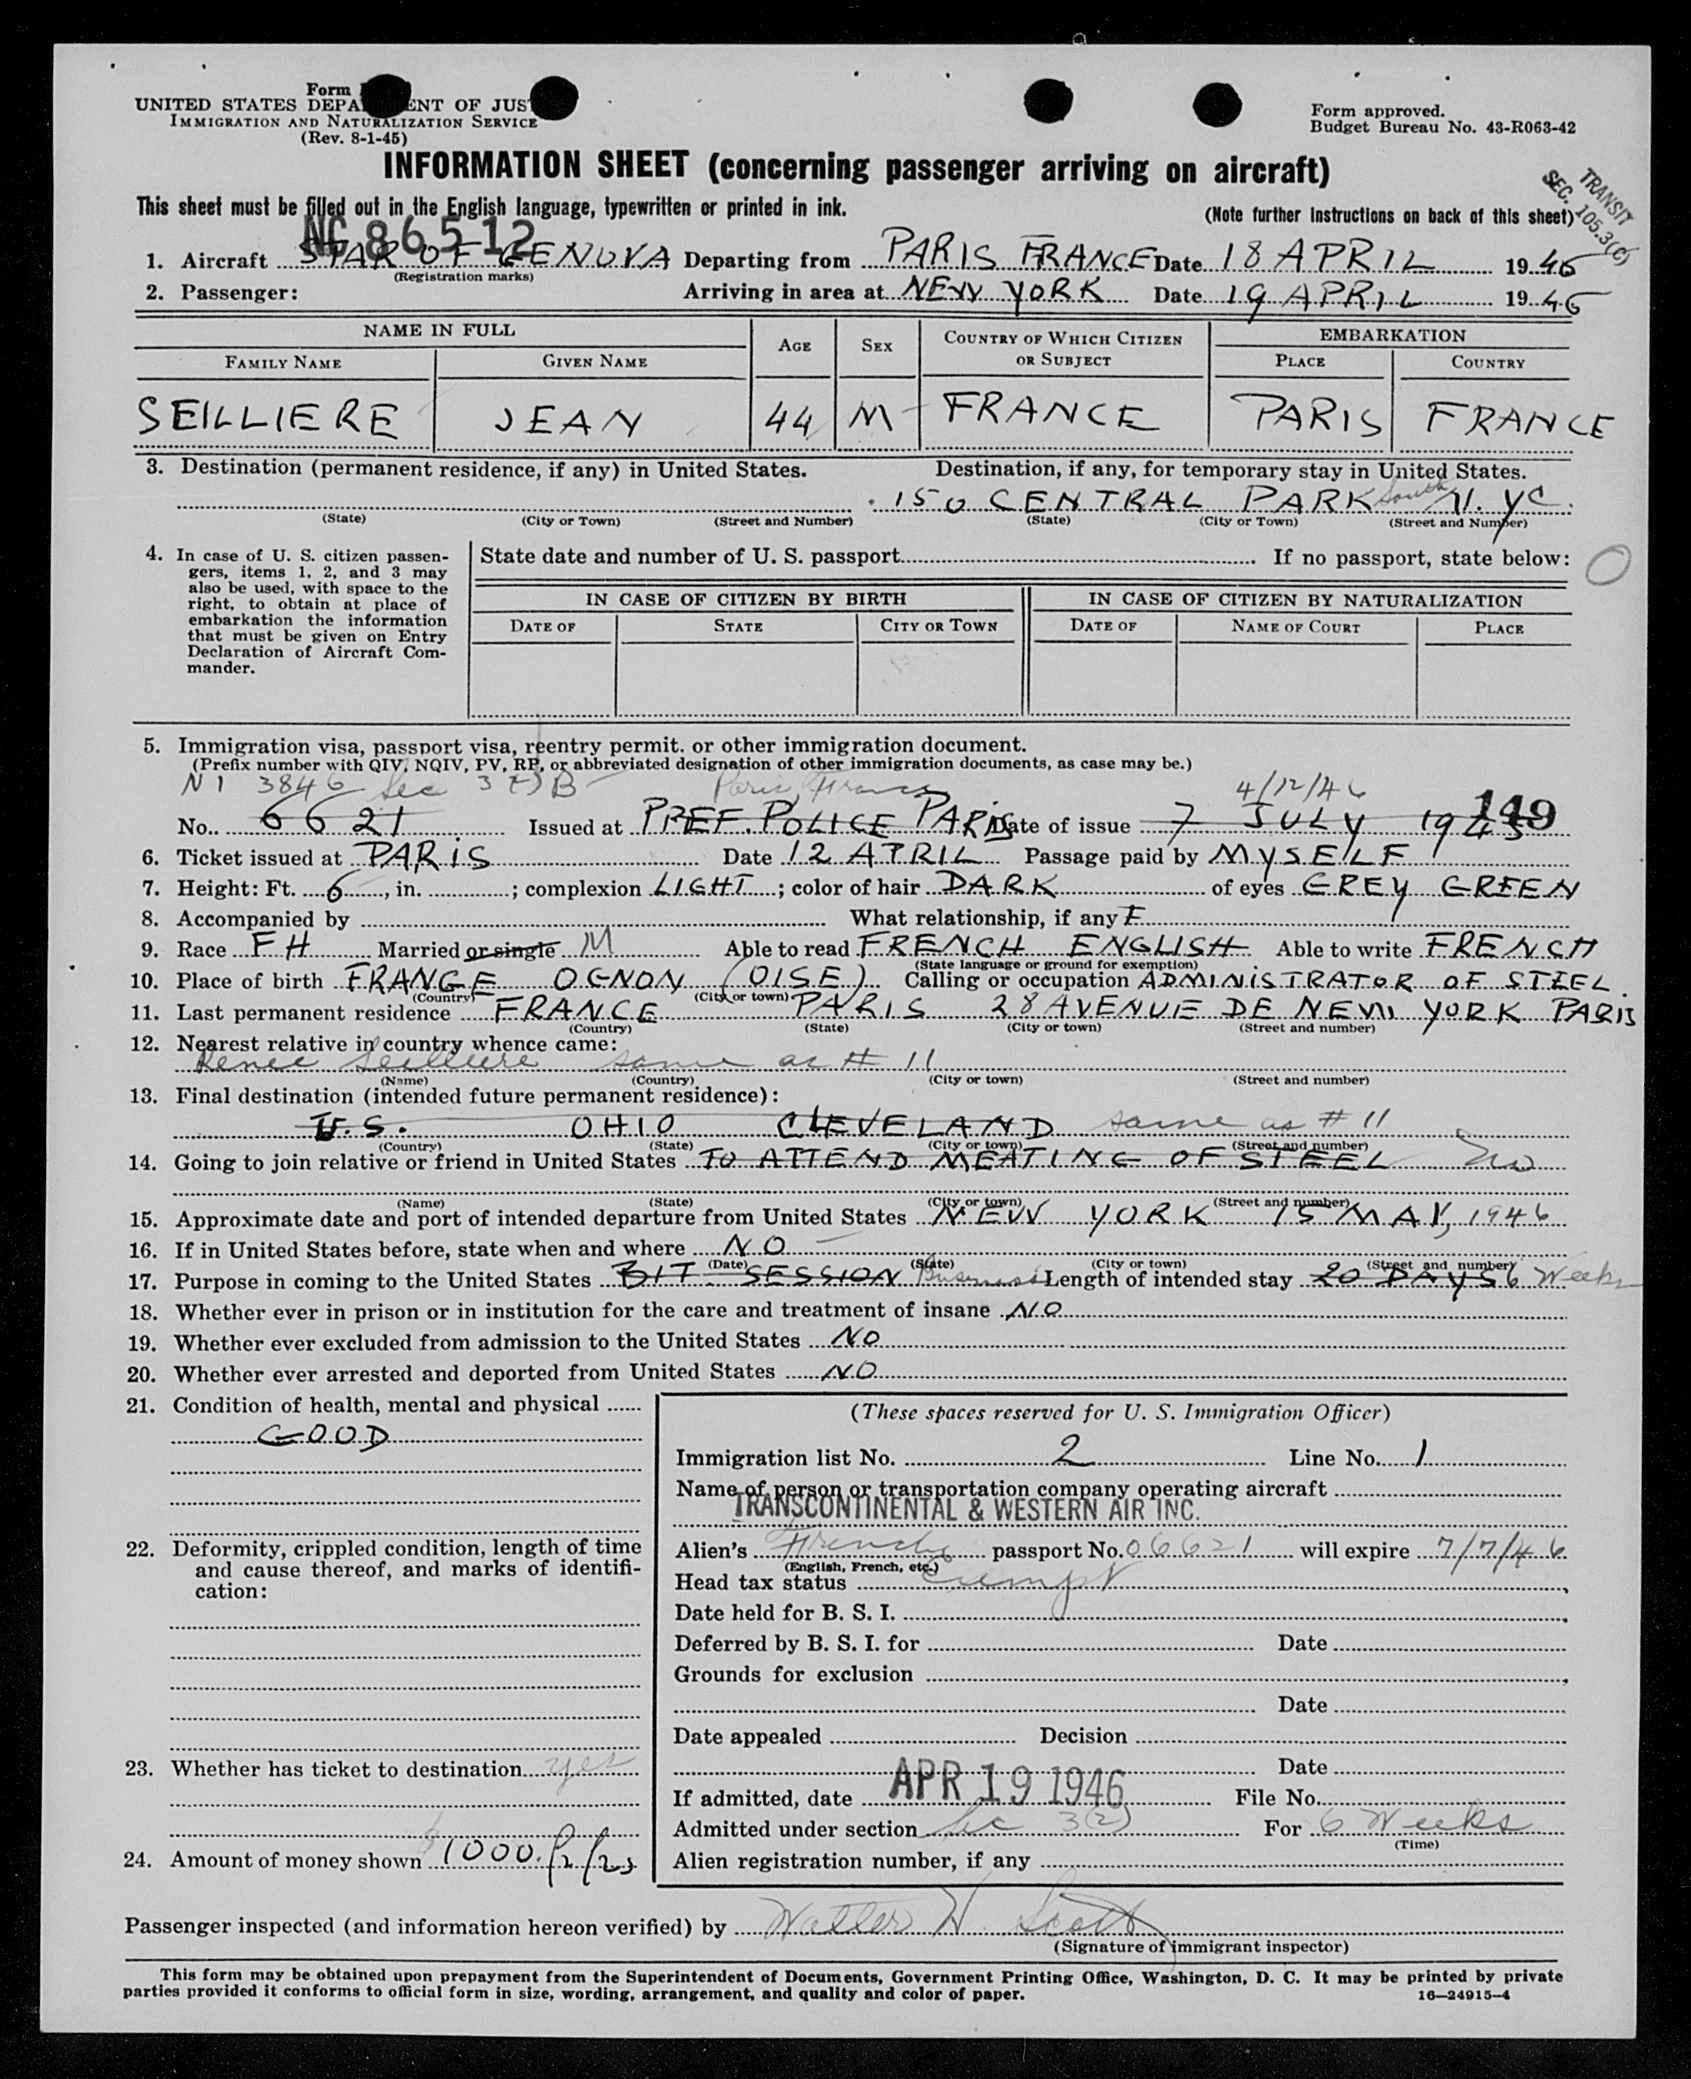 Form
UNITED STATES DEPA ENT OF JUS
IMMIGRATION AND NATURALIZATION SERVICE
(Rev. 8-1-45)
Form approved.
Budget Bureau No. 43-R063-42
INFORMATION SHEET (concerning passenger arriving on aircraft)
TRANSIT
SEC. 105.3(C)
This sheet must be filled out in the English language, typewritten or printed in ink.
(Note further instructions on back of this sheet)
NC 86512
1. Aircraft STAR OF GENOVA Departing from PARIS FRANCE Date 18 APRIL 1946
(Registration marks)
2. Passenger: Arriving in area at NEW YORK Date 19 APRIL 1946
NAME IN FULL
FAMILY NAME GIVEN NAME AGE SEX COUNTRY OF WHICH CITIZEN OR SUBJECT EMBARKATION PLACE COUNTRY
SEILLIERE JEAN 44 M FRANCE PARIS FRANCE
3. Destination (permanent residence, if any) in United States. Destination, if any, for temporary stay in United States.
150 CENTRAL PARK South N.Y.C.
(State) (City or Town) (Street and Number) (State) (City or Town) (Street and Number)
4. In case of U. S. citizen passengers, items 1, 2, and 3 may also be used, with space to the right, to obtain at place of embarkation the information that must be given on Entry Declaration of Aircraft Commander.
State date and number of U. S. passport If no passport, state below:
IN CASE OF CITIZEN BY BIRTH IN CASE OF CITIZEN BY NATURALIZATION
DATE OF STATE CITY OR TOWN DATE OF NAME OF COURT PLACE
5. Immigration visa, passport visa, reentry permit. or other immigration document.
(Prefix number with QIV, NQIV, PV, RP, or abbreviated designation of other immigration documents, as case may be.)
NI 3846 Sec 3(2)B Paris, France 4/12/46
149
No. 6621 Issued at PREF. POLICE PARIS Date of issue 7 JULY 1945
6. Ticket issued at PARIS Date 12 APRIL Passage paid by MYSELF
7. Height: Ft. 6, in. ; complexion LIGHT; color of hair DARK of eyes GREY GREEN
8. Accompanied by What relationship, if any
9. Race FH Married or single M Able to read FRENCH ENGLISH Able to write FRENCH
(State language or ground for exemption)
10. Place of birth FRANCE OGNON (OISE) Calling or occupation ADMINISTRATOR OF STEEL
(Country) (City or town)
11. Last permanent residence FRANCE PARIS 28 AVENUE DE NEW YORK PARIS
(Country) (State) (City or town) (Street and number)
12. Nearest relative in country whence came:
Renee Seilliere same as # 11
(Name) (Country) (City or town) (Street and number)
13. Final destination (intended future permanent residence):
U.S. OHIO CLEVELAND same as # 11
(Country) (State) (City or town) (Street and number)
14. Going to join relative or friend in United States TO ATTEND MEATING OF STEEL no
(Name) (State) (City or town) (Street and number)
15. Approximate date and port of intended departure from United States NEW YORK 15 MAY, 1946
16. If in United States before, state when and where NO
(Date) (State) (City or town) (Street and number)
17. Purpose in coming to the United States BIT SESSION Business Length of intended stay 20 DAYS 6 Weeks
18. Whether ever in prison or in institution for the care and treatment of insane NO
19. Whether ever excluded from admission to the United States NO
20. Whether ever arrested and deported from United States NO
21. Condition of health, mental and physical
GOOD
22. Deformity, crippled condition, length of time and cause thereof, and marks of identification:
23. Whether has ticket to destination yes
24. Amount of money shown 1000.
(These spaces reserved for U. S. Immigration Officer)
Immigration list No. 2 Line No. 1
Name of person or transportation company operating aircraft
TRANSCONTINENTAL & WESTERN AIR INC.
Alien's French passport No. 06621 will expire 7/7/46
(English, French, etc.)
Head tax status exempt
Date held for B. S. I.
Deferred by B. S. I. for Date
Grounds for exclusion
Date
Date appealed Decision
Date
If admitted, date APR 19 1946 File No.
Admitted under section Sec 3(2) For 6 Weeks
(Time)
Alien registration number, if any
Passenger inspected (and information hereon verified) by Walter W. Scott
(Signature of immigrant inspector)
This form may be obtained upon prepayment from the Superintendent of Documents, Government Printing Office, Washington, D. C. It may be printed by private
parties provided it conforms to official form in size, wording, arrangement, and quality and color of paper.
16—24915-4